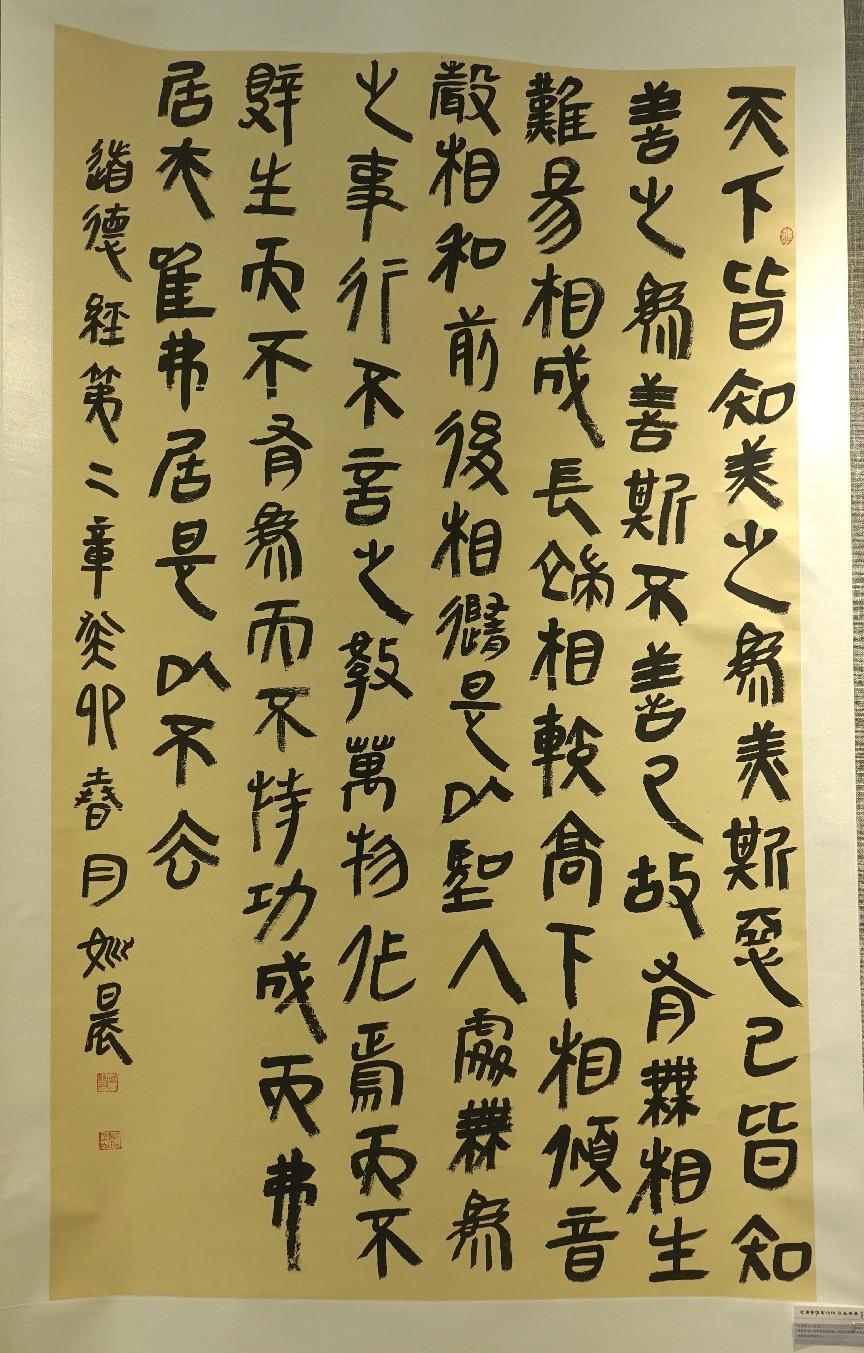 天下皆知美之爲美斯惡已皆知
善之爲善斯不善已故有無相生
難易相成長短相較高下相傾音
聲相和前後相隨是以聖人處無爲
之事行不言之教萬物作焉而不
辭生而不有爲而不恃功成而弗
居夫唯弗居是以不去
道德經第二章癸卯春月姚晨